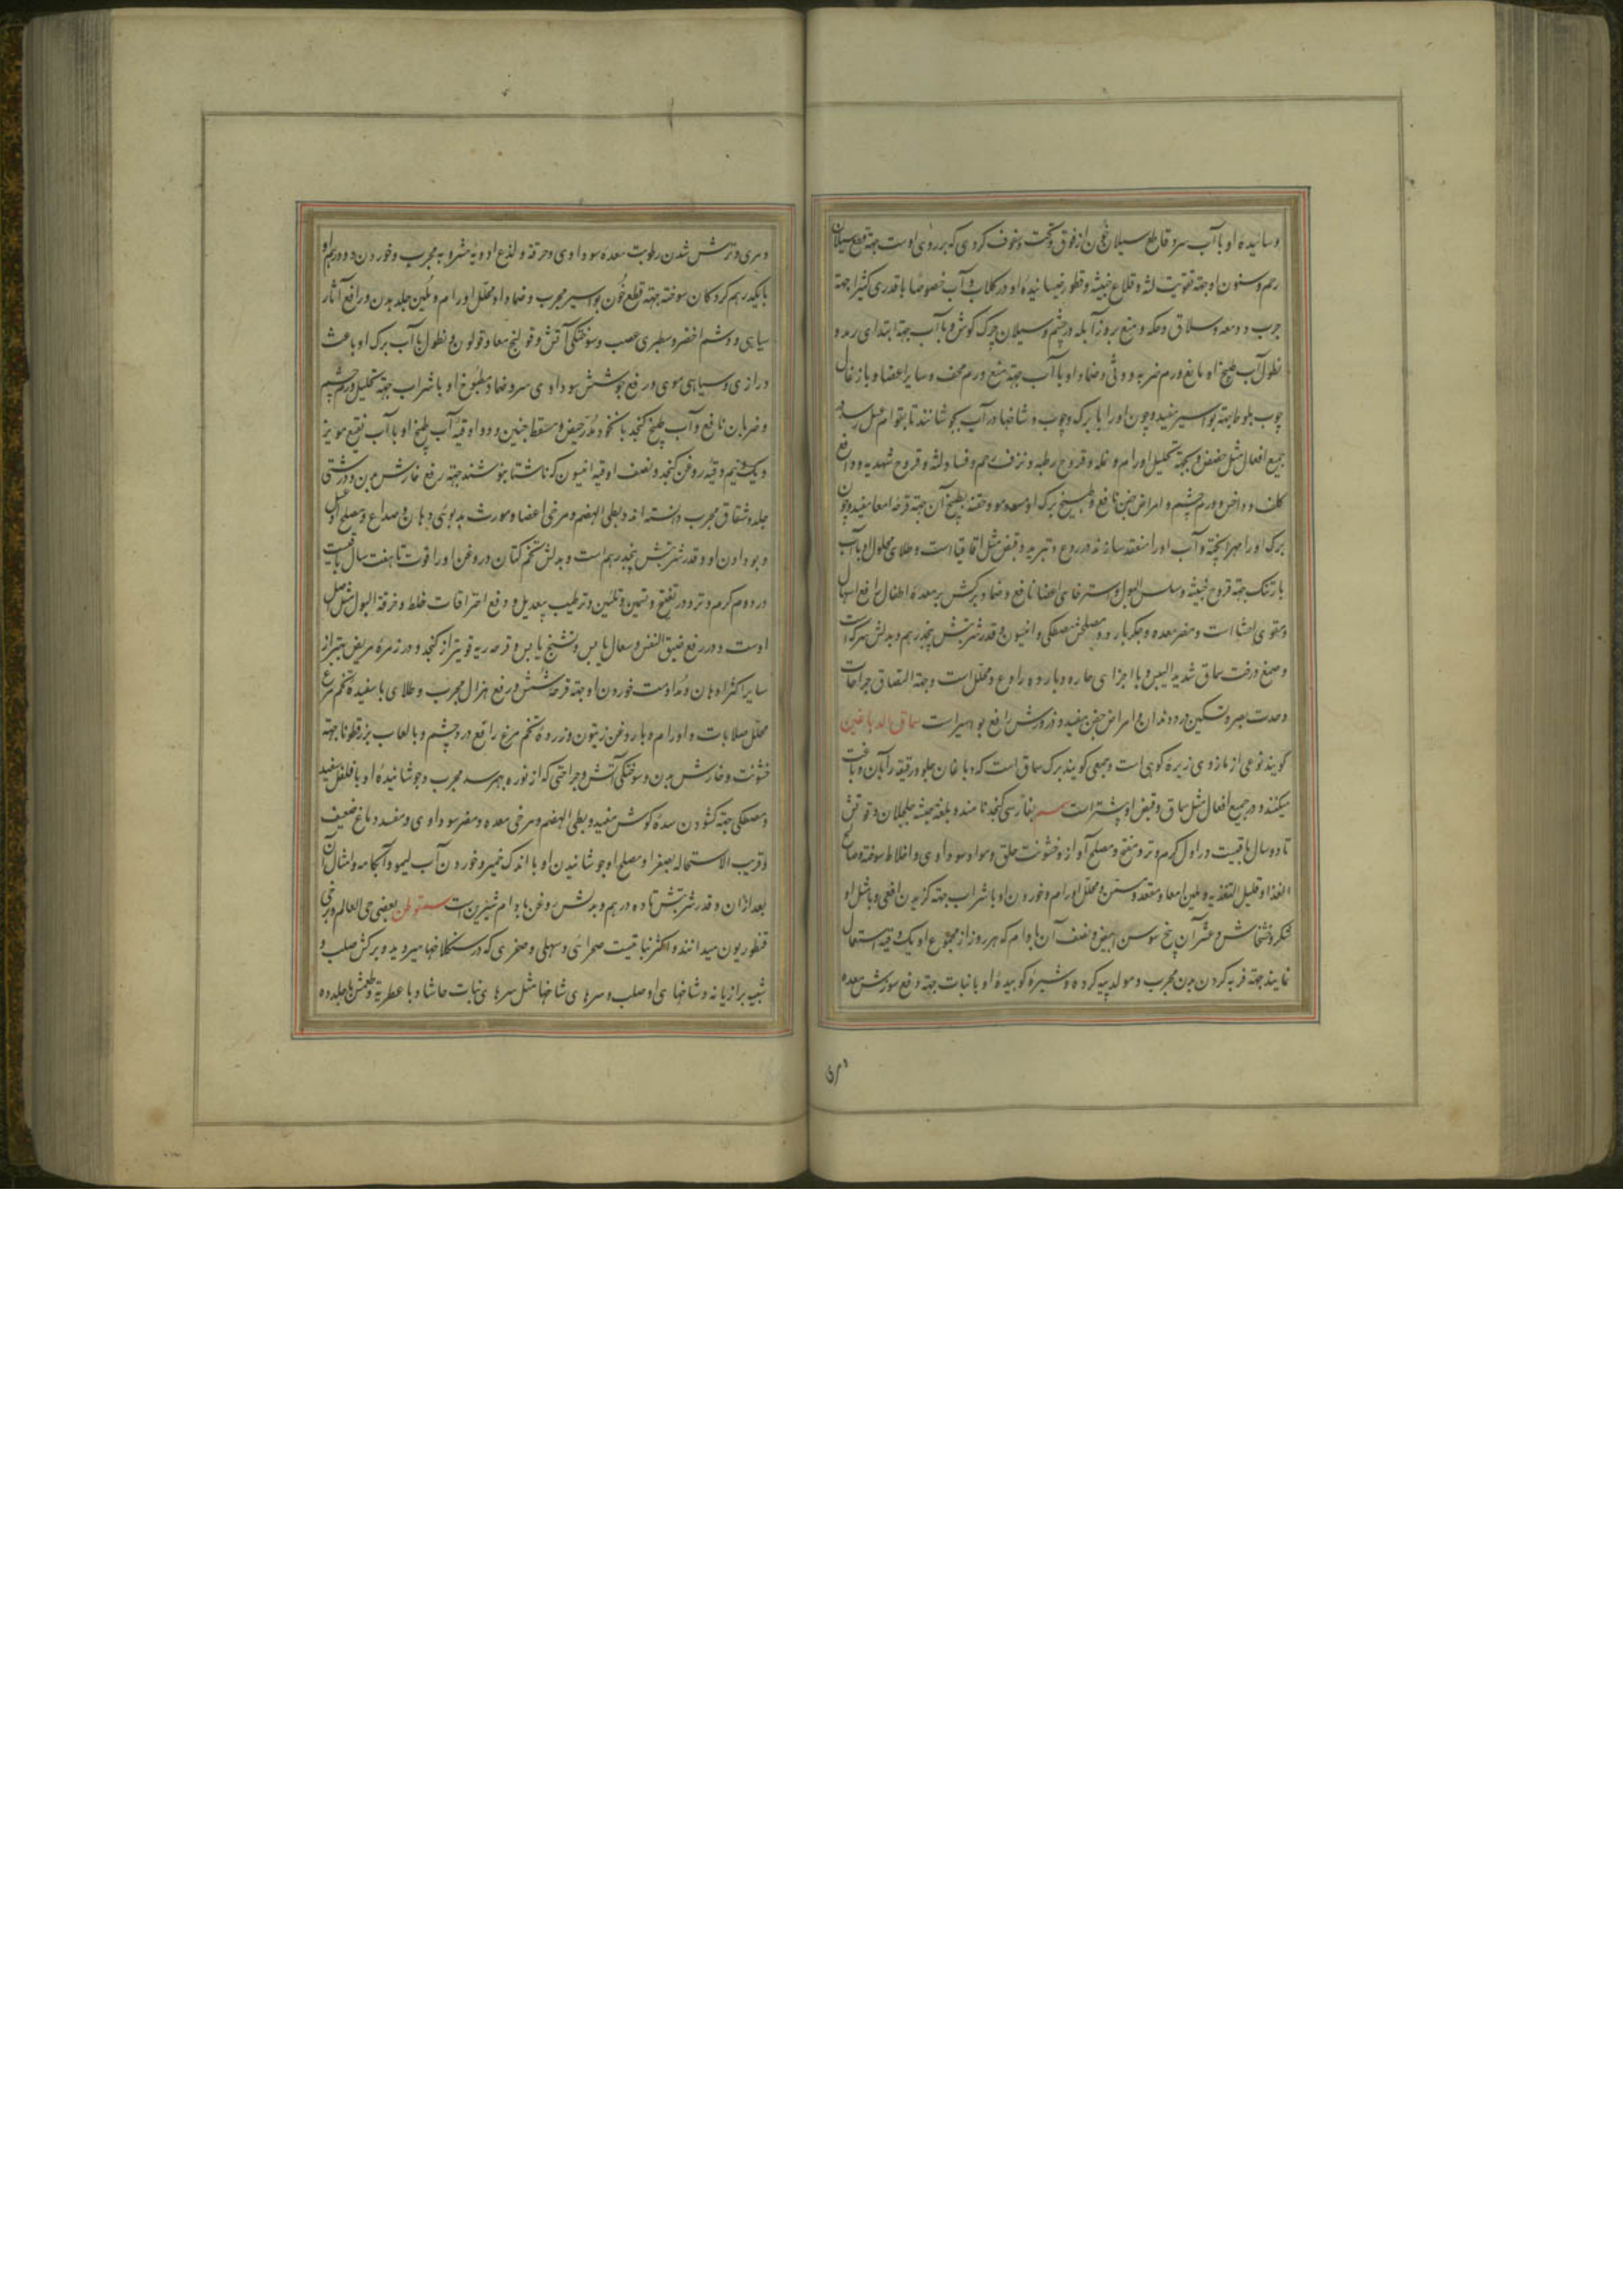 وسائیده او با آب سرد قاطع سیلان خون از فوق و تحت و سفوف گردی که بر روی اوست جهة قطع سیلان
رحم و سنون او جهة تقویت لثه و قلاع خبیثه و قطور خیسانیده او در گلاب و آب خصوصا با قدری کثیرا جهة
جرب و دمعه و سلاق و حکه و منع بروز آبله در چشم و سیلان چرک گوش و با آب جهة ابتدای رمد و
نطول آب طبیخ او مانع ورم ضربه و وثی و ضماد او با آب جهة منع ورم قحف و سایر اعضا و با زغال
چوب بلوط جهة بواسیر مفید و چون او را با برک و چوب و شاخها در آب بجوشانند تا بقوام عسل رسد در
جمیع افعال مثل حضض و بجهة تحلیل اورام و نمله و قروح رطبه و نزف رحم و فساد لثه و قروح شهدیه و رافع
کلف و داخس و ورم چشم و امراض جفن نافع و طبیخ برک او مسود مو و حقنه بطبیخ آن جهة قرحه امعا مفید و چون
برک او را مهرا پخته و آب او را منعقد سازند در ردع و تبرید و قبض مثل اقاقیا است و طلای محلول او با آب
بارتنک جهة قروح خبیثه و سلس البول و استرخای اعضا نافع و ضماد برکش بر معده اطفال رافع اسهال
و مقوی احشا است و مضر معده و جگر بارد و مصلحش مصطکی و انیسون و قدر شربتش پنجدرهم و بدلش سرکه است
و صمغ درخت سماق شدید الیبس و با اجزای حاره و بارده رادع و محلل است و جهة التصاق جراحات
و حدت بصر و تسکین درد دندان و امراض جفن مفید و ذرورش رافع بواسیر است سماق الدباغین
گویند نوعی از مازوی زیره کوهی است و جمعی گویند برک سماق است که دباغان جلود رقیقه را بآن دباغت
میکنند و در جمیع افعال مثل سماق و قبض او بیشتر است سمسم بفارسی کنجد نامند و بلغة حبشه جلجلان و قوتش
تا دو سال باقیست در اول گرم و تر و مفتح و مصلح آواز و خشونت حلق و مواد سوداوی و اخلاط سوخته و صالح
الغذا و قلیل التغذیه و ملین امعا و مقعد و مسمن و محلل اورام و خوردن او با شراب جهة گزیدن افعی و با مثل او
شکر و خشخاش و عشر آن بیخ سوسن ابیض و نصف آن بادام که هر روز از مجموع او یک وقیه استعمال
نمایند جهة فربه کردن بدن مجرب و مولد پیه گرده و شیره کوبیده او با نبات جهة دفع سوزش معده
و مری و ترش شدن رطوبت معده سوداوی و حرقة و لذع ادویه مشروبه مجرب و خوردن دو درهم او
با یکدرهم گردکان سوخته جهة قطع خون بواسیر مجرب و ضماد او محلل اورام و ملین جلد بدن و رافع آثار
سیاهی و وشم اخضر و سطبری عصب و سوختگی آتش و قولنج معا و قولون و نطول با آب برک او باعث
درازی و سیاهی موی و رافع جوشش سوداوی سر و ضماد مطبوخ او با شراب جهة تحلیل ورم چشم
و ضربان نافع و آب طبیخ کنجد با نخود مدر حیض و مسقط جنین و دو اوقیه آب طبیخ او با آب نقیع مویز
و یک و نیم وقیه روغن کنجد و نصف اوقیه انیسون که ناشتا بنوشند جهة رفع خارش بدن و درشتی
جلد و شقاق مجرب دانسته اند و بطی الهضم و مرخی اعضا و مورث بدبوئی دهان و صداع و مصلح او عسل
و بو دادن او و قدر شربتش پنجدرهم است و بدلش تخم کتان و روغن او را قوت تا هفت سال باقیست
در دوم گرم و تر و در تفتح و تسمین و تلیین و ترطیب بیعدیل و دفع احتراقات خلط و حرقة البول مثل اصل
اوست و در رفع ضیق النفس و سعال یابس و تشنج یابس و قرحه ریه قویتر از کنجد و در زمره مریض بهتر از
سایر اکثر ادهان و مداومت خوردن او جهة قرحه شش و رفع هزال مجرب و طلای با سفیده تخم مرغ
محلل صلابات و اورام و با روغن زیتون و زرده تخم مرغ رافع درد چشم و با لعاب بزرقطونا جهة
خشونت و خارش بدن و سوختگی آتش و جراحتی که از نوره بهم رسد مجرب و جوشانیده او با فلفل سفید
و مصطکی جهة گشودن سده گوش مفید و بطی الهضم و مرخی معده و مضر سوداوی و مفسد دماغ ضعیف
و قریب الاستحاله بصفرا و مصلح او جوشانیدن او با اندک خمیر و خوردن آب لیمو و آبکامه و امثال آن
بعد از آن و قدر شربتش تا ده درهم و بدلش روغن بادام شیرین است سمنوطن بعضی حی العالم و برخی
قنطوریون میدانند و اکثر نباتیست صحرائی و سهلی و صخری که در سنگلاخها میروید و برکش صلب و
شبیه برازیانه و شاخهای او صلب و سرهای شاخها مثل سرهای نبات حاشا و با عطریة و طعمش با جلد و ده